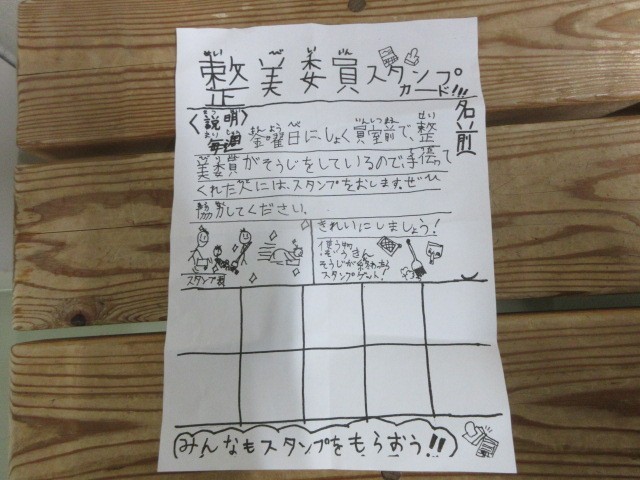 整美委員スタンプ
カード!!!
名前
〈説明〉
毎週金曜日にしょく員室前で、整
美委員がそうじをしているので手伝って
くれた人には、スタンプをおします。ぜひ
協力してください。
きれいにしましょう!
使う物
ぞうきん
そうじが終わったら
スタンプゲット!
スタンプ表
みんなもスタンプをもらおう!!